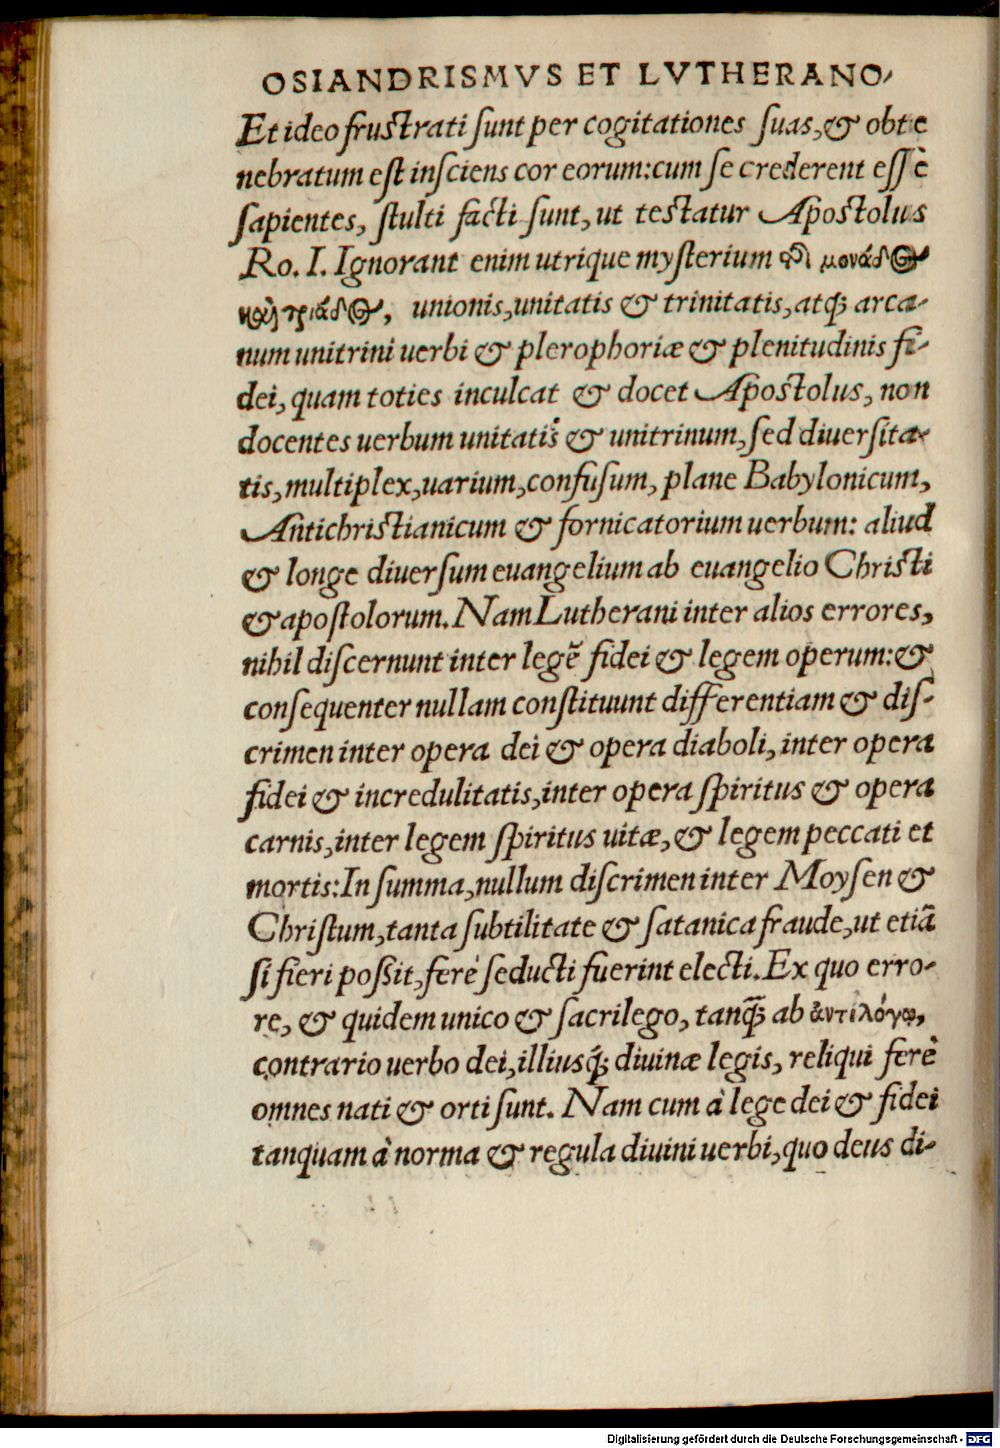 OSIANDRISMVS ET LVTHERANO-
Et ideo frustrati sunt per cogitationes suas, & obte
nebratum est insciens cor eorum: cum se crederent essè
sapientes, stulti facti sunt, ut testatur Apostolus
Ro. I. Ignorant enim utrique mysterium τῆς μονάδος
καὶ τριάδος, unionis, unitatis & trinitatis, atq; arca-
num unitrini uerbi & plerophoriæ & plenitudinis fi-
dei, quam toties inculcat & docet Apostolus, non
docentes uerbum unitatis & unitrinum, sed diuersita-
tis, multiplex, uarium, confusum, plane Babylonicum,
Antichristianicum & fornicatorium uerbum: aliud
& longe diuersum euangelium ab euangelio Christi
& apostolorum. Nam Lutherani inter alios errores,
nihil discernunt inter legē fidei & legem operum: &
consequenter nullam constituunt differentiam & dis-
crimen inter opera dei & opera diaboli, inter opera
fidei & incredulitatis, inter opera spiritus & opera
carnis, inter legem spiritus uitæ, & legem peccati et
mortis: In summa, nullum discrimen inter Moysen &
Christum, tanta subtilitate & satanica fraude, ut etiā
si fieri possit, ferè seducti fuerint electi. Ex quo erro-
re, & quidem unico & sacrilego, tanq̃; ab ἀντιλόγῳ,
contrario uerbo dei, illiusq́; diuinæ legis, reliqui ferè
omnes nati & orti sunt. Nam cum à lege dei & fidei
tanquam à norma & regula diuini uerbi, quo deus di-
Digitalisierung gefördert durch die Deutsche Forschungsgemeinschaft - DFG